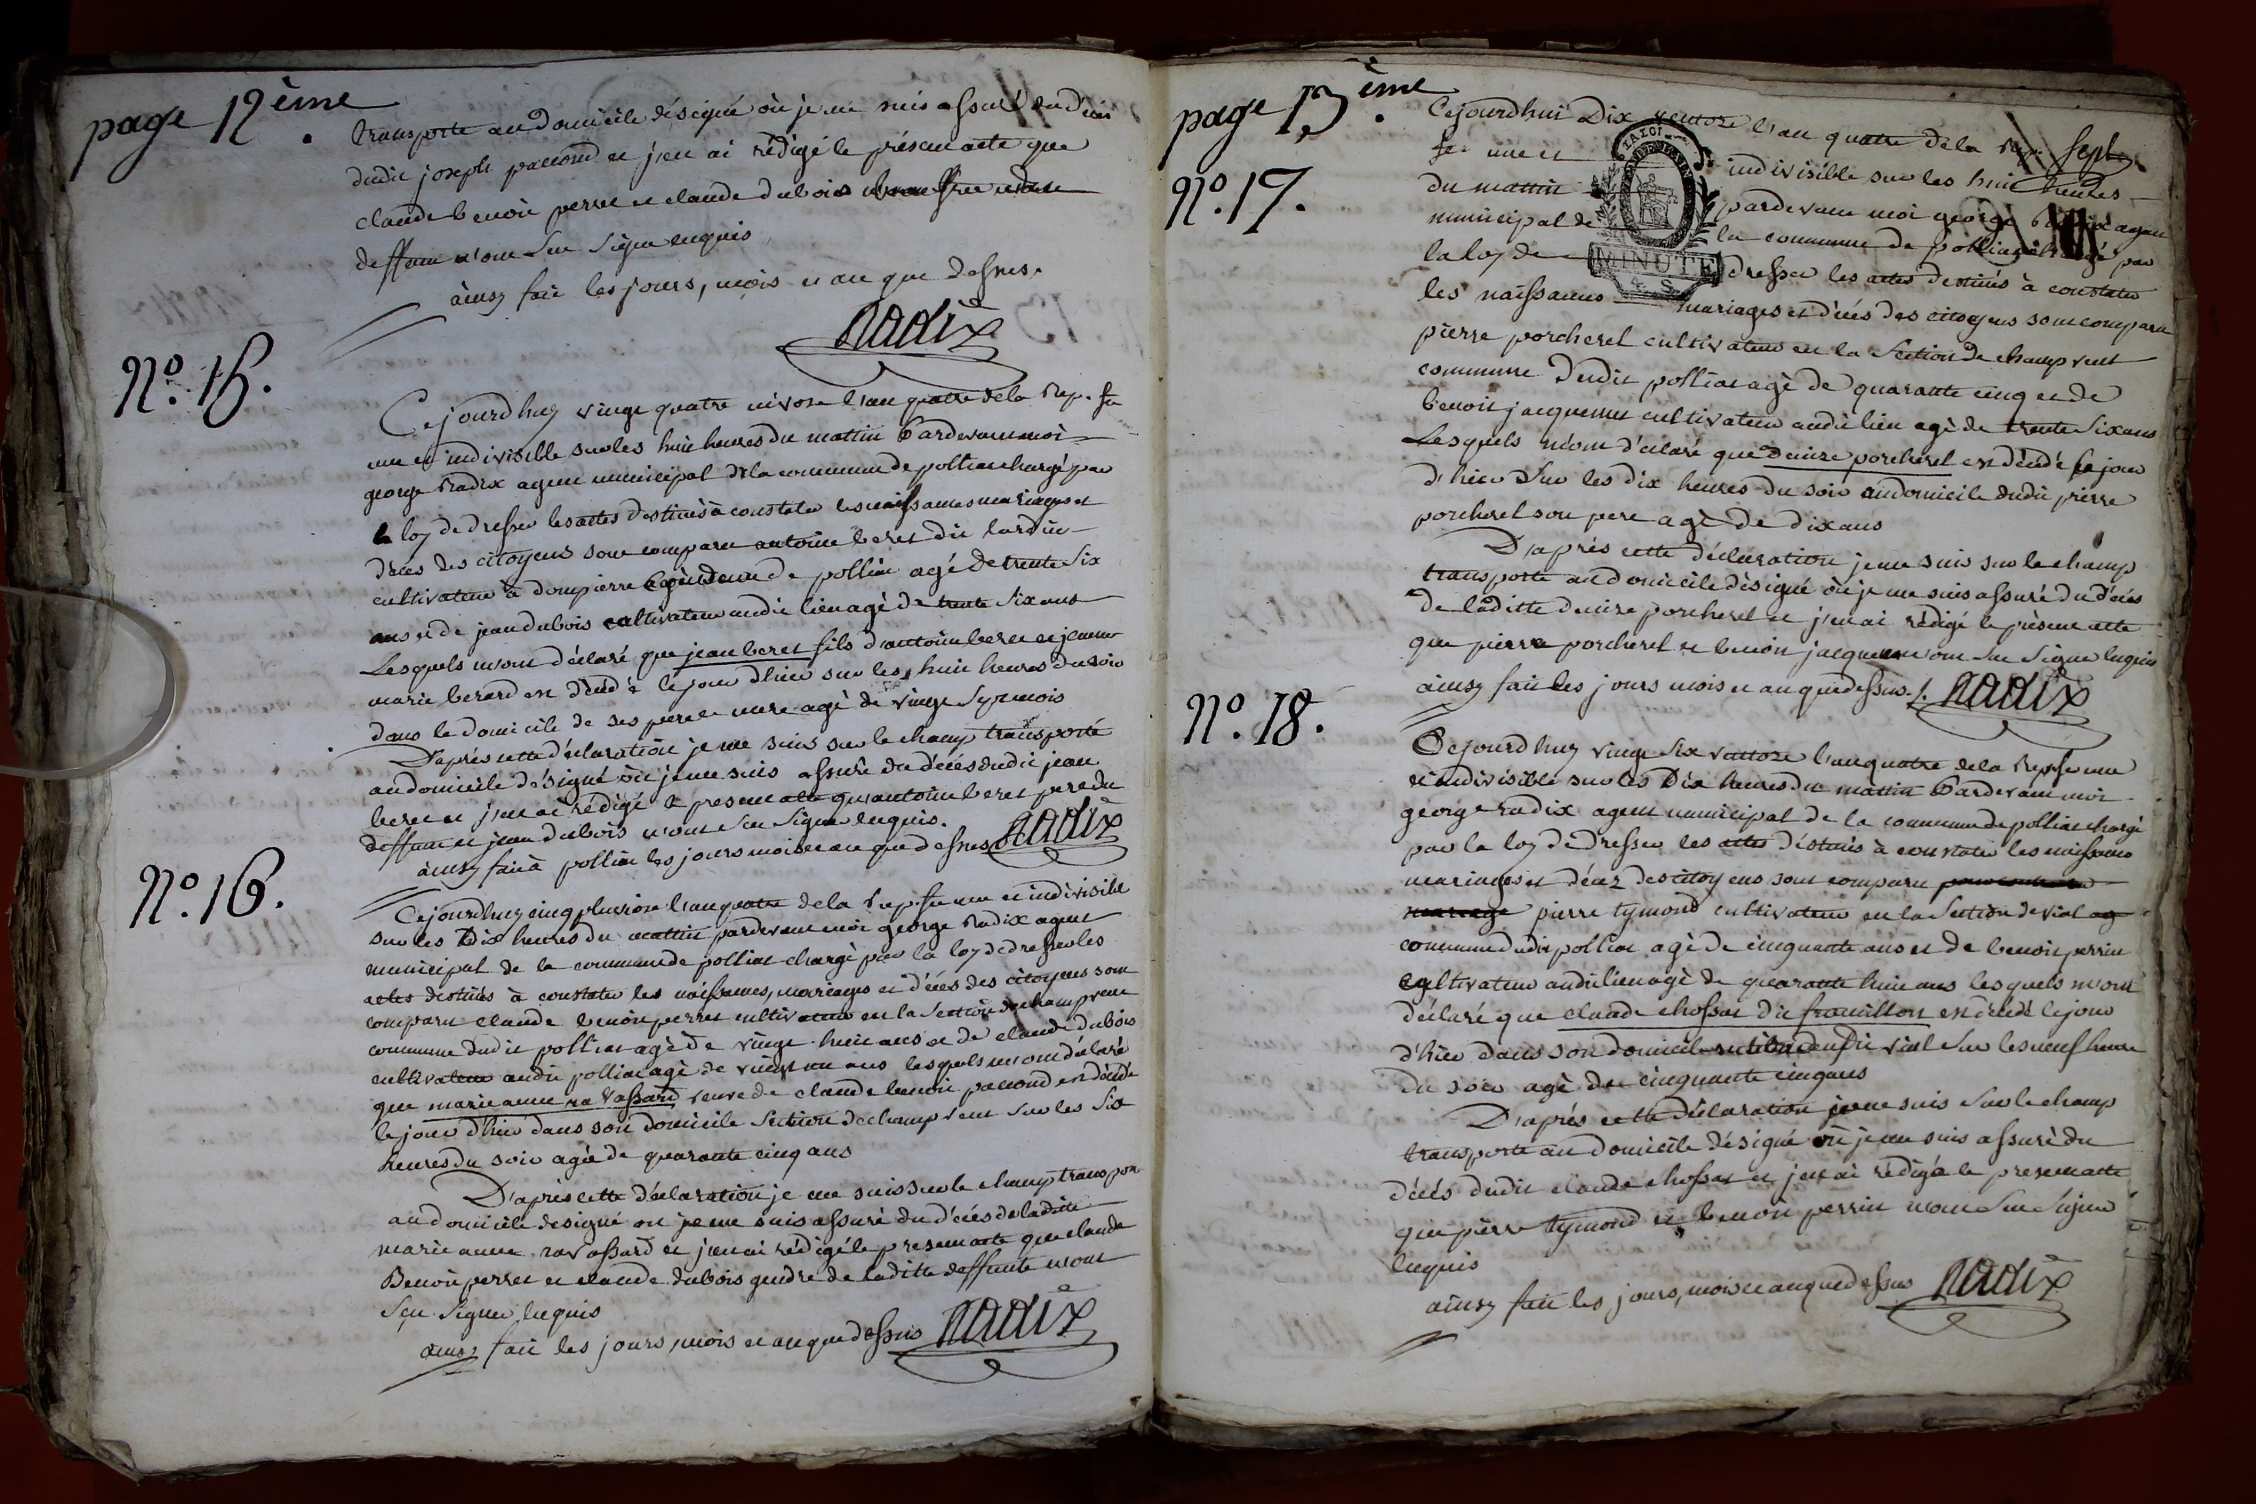 page 12ème.
transporté au domicile désigné où je me suis assuré du décès
dudit joseph pacoud et j'en ai rédigé le présent acte que
claude benoit perret et claude dubois
deffunt n'ont sçu signer enquis
àinsy fait les jours, mois et an que dessus.
Radix
N.º 15.
Cejourdhuy vingt quatre nivose l'an quatre de la Rep. fse
une et indivisible sur les huit heures du mattin Pardevant moi
george Radix agent municipal de la commune de polliat chargé par
la loy de dresser les actes destinés à constater les naissances mariages et
décès des citoyens sont comparu antoine beret dit lardin
cultivateur à dompierre de polliat agé de trente six
ans et de jean dubois cultivateur audit lieu agé de trente six ans
Lesquels m'ont déclaré que jean beret fils d'antoine beret et jeanne
marie berard est décédé le jour d'hier sur les huit heures du soir
dans le domicile de ses pere et mere agé de vingt sept mois
D'après cette déclaration je me suis sur le champ transporté
au domicile désigné où je me suis assuré du décès dudit jean
beret et j'en ai rédigé le present acte qu'antoine beret pere du
deffunt et jean dubois n'ont sçu signer enquis.
àinsy fait à polliat les jours mois et an que dessus Radix
N.º 16.
Cejourdhuy cinq pluviose l'an quatre de la Rep. fse une et indivisible
sur les Dix heures du mattin pardevant moi george Radix agent
municipal de la commune de polliat chargé par la loy de dresser les
actes destinés à constater les naissances, mariages et décès des citoyens sont
comparu claude benoit perret cultivateur en la Section de champvent
commune dudit polliat agé de vingt huit ans et de claude dubois
cultivateur audit polliat agé de vingt un ans lesquels m'ont déclaré
que marie anne ravassard veuve de claude benoit pacoud est décédé
le jour d'hier dans son domicile Section de champvent sur les six
heures du soir agée de quarante cinq ans
D'après cette déclaration je me suis sur le champ transpor
au domicile designé où je me suis assuré du décès de laditte
marie anne ravassard et j'en ai rédigé le present acte que claude
Benoit perret et claude dubois gendre de laditte deffunte n'ont
sçu signer enquis
àinsy fait les jours, mois et an que dessus Radix
page 13ème.
N.º 17.
Cejourdhui Dix ventose l'an quatre de la Rep. sept
fse une et indivisible sur les huit heures
du mattin pardevant moi george Radix agent
municipal de la commune de polliat chargé par
la loy de dresser les actes destinés à constater
les naissances mariages et décès des citoyens sont comparu
pierre porcheret cultivateur en la Section de champvent
commune dudit polliat agé de quarante cinq et de
benoit jacquemet cultivateur audit lieu agé de trente six ans
Lesquels m'ont déclaré que denise porcheret est décédé le jour
d'hier sur les dix heures du soir audomicile dudit pierre
porcheret son pere agé de dix ans
D'après cette déclaration je me suis sur le champ
transporté au domicile désigné où je me suis assuré du décès
de laditte denise porcheret et j'en ai rédigé le présent acte
que pierre porcheret et benoit jacquemet n'ont sçu signer enquis
àinsy fait les jours mois et an que dessus. Radix
MINUTE
4. S.
N.º 18.
Cejourdhuy vingt six ventose l'an quatre de la Rep. fse une
et indivisible sur les Dix heures du mattin Pardevant moi
george Radix agent municipal de la commune de polliat chargé
par la loy de dresser les actes déstinés à constater les naissances
mariages et décez des citoyens sont comparu
mariage pierre tymond cultivateur en la Section de vial
commune dudit polliat agé de cinquante ans et de benoit perrin
cultivateur audit lieu agé de quarante huit ans lesquels m'ont
déclaré que claude chossat dit frouillon est décédé le jour
d'hier dans son domicile section dudit vial sur les neuf heures
du soir agé de cinquante cinq ans
D'après cette déclaration je me suis sur le champ
transporté au domicile désigné où je me suis assuré du
décès dudit claude chossat et j'en ai rédigé le present acte
que pierre tymond et benoit perrin n'ont sçu signer
enquis
ainsy fait les jours, mois et an que dessus Radix